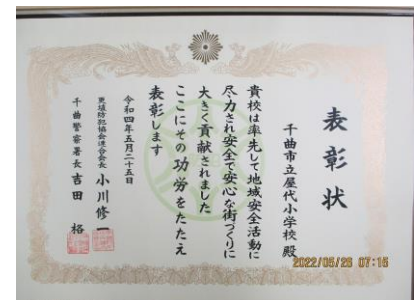 表彰状
千曲市立屋代小学校殿
貴校は率先して地域安全活動に
尽力され安全で安心な街づくりに
大きく貢献されました
ここにその功労をたたえ
表彰します
令和四年五月二十五日
更埴防犯協会連合会長 小川修一
千曲警察署長 吉田
2022/05/26 07:15